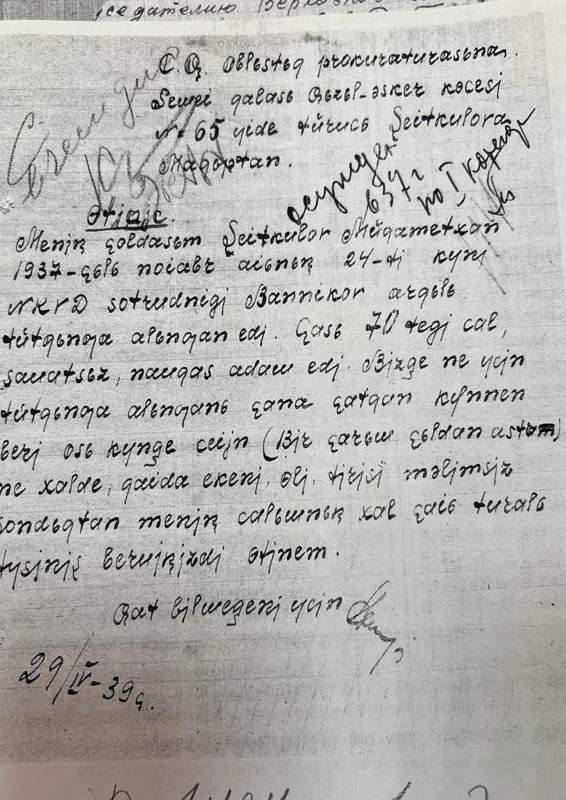 седателю Верховно
C. Q. Oblьstьq prokuraturasьna.
Semei qalasь Qьzьl-əsker kɵcesi
N= 65 yide turucь Seitkulova
осужден
по I
Ɵtiniç.
Meniꞑ çoldasьm Seitkulov Mugametxan
1937-çьlь noiabr aiьnьꞑ 24-ti kyni
NKVD sotrudnigi Bannikov arqьlь
tutqьnƣa alьnƣan edi. Çasь 70 tegi cal,
sauatsьz, nauqas adam edi. Bizge ne ycin
tutqьnƣa alьnƣanь çana çatqan kynnen
beri osь kynge ceiin (Bir çarьm çьldan astam)
ne xalde, qaida ekeni, ɵli, tirisi məlimsiz
sondьqtan meniꞑ calьmnьꞑ xal çaiь turalь
tysiniç beruiꞑizdi ɵtinem.
Qat bilmegeni ycin
29/IV-39ç.